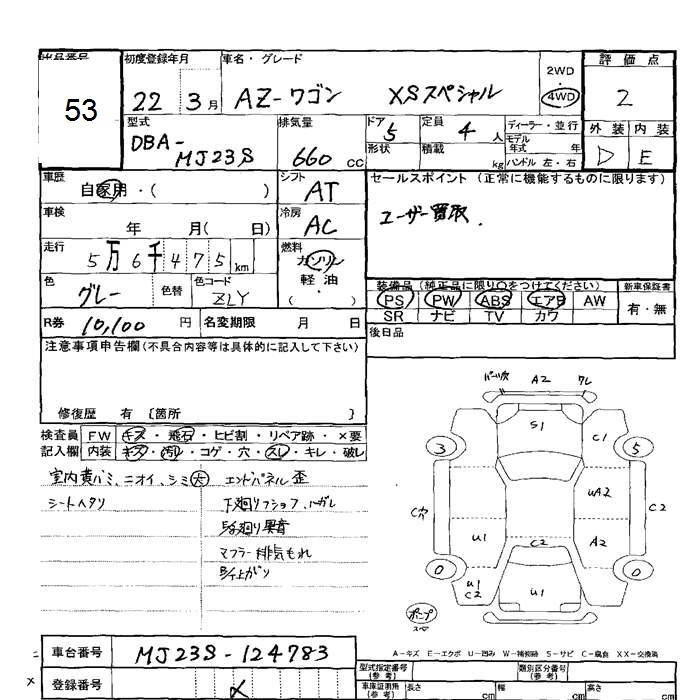 出品番号 初度登録年月 車名・グレード 評価点
53 22 3月 AZ-ワゴン XSスペシャル 2WD ・ 4WD 2
型式 排気量 ドア 定員 ディーラー・並行 外装 内装
DBA- MJ23S 660 CC 5 4 人 モデル年式 年 D E
形状 積載 kg ハンドル 左・右
車歴 シフト セールスポイント (正常に機能するものに限ります)
自家用・( ) AT ユーザー買取.
車検 年 月( 日) 冷房 AC
走行 5万6千475km 燃料 ガソリン
色 グレー 色替 色コード ZLY 軽油・( )
装備品(純正品に限り○をつけてください) 新車保証書
PS PW ABS エアB AW 有・無
SR ナビ TV カワ
R券 10,100 円 名変期限 月 日 後日品
注意事項申告欄(不具合内容等は具体的に記入して下さい)
修復歴 有 [箇所 ]
検査員 FW キズ・飛石・ヒビ割・リペア跡・×要
記入欄 内装 キズ・汚れ・コゲ・穴・スレ・キレ・破レ
室内黄バミ、ニオイ、シミ大 エンドパネル歪
シートヘタリ 下廻り
異音
マフラー排気もれ
A2 ワレ
S1
3 C1 5
UA2 C2
C穴 U1 C2 A2
0 0
U1 C2 U1
ポンプ
A-キズ E-エクボ U-凹み W-補修跡 S-サビ C-腐食 XX-交換済
車台番号 MJ23S-124783
登録番号 ×
型式指定番号(参考) 類別区分番号(参考)
車庫証明用(参考) 長さ cm 幅 cm 高さ cm